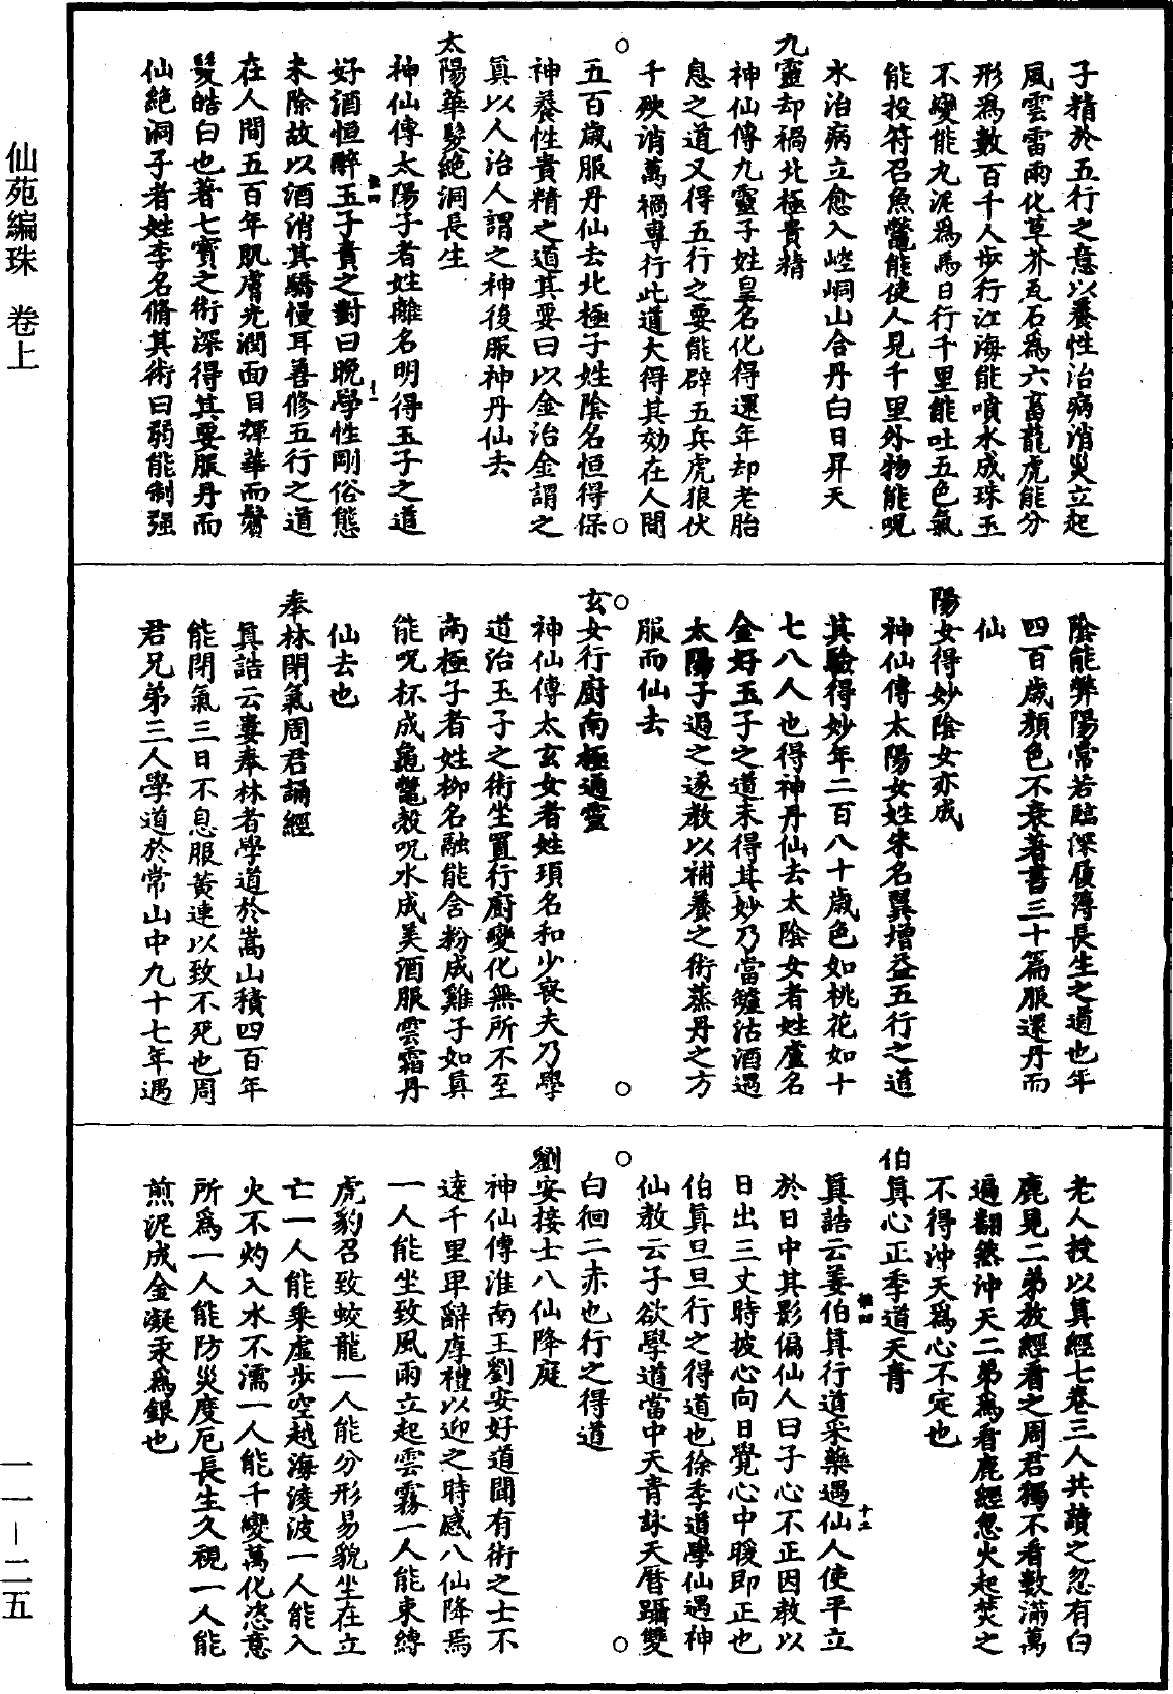 子精於五行之意以養性治病消災立起
風雲雷雨化草芥瓦石為六畜龍虎能分
形為數百千人步行江海能噴水成珠玉
不變能九泥為馬日行千里能吐五色氣
能投符召魚鼈能使人見千里外物能呪
水治病立愈入崆峒山合丹白日昇天
九靈却禍北極貴精
神仙傳九靈子姓皇名化得還年却老胎
息之道又得五行之要能辟五兵虎狼伏
千殃消萬禍專行此道大得其効在人間
五百歲服丹仙去北極子姓陰名恒得保
神養性貴精之道其要曰以金治金謂之
真以人治人謂之神後服神丹仙去
太陽華髮絕洞長生
神仙傳太陽子者姓離名明得玉子之道
好酒恒醉玉子責之對曰晚學性剛俗態
未除故以酒消其驕慢耳善修五行之道
在人間五百年肌膚光潤面目輝華而鬢
髮皓白也著七寶之術深得其要服丹而
仙絕洞子者姓李名脩其術曰弱能制强
陰能弊陽常若臨深履薄長生之道也年
四百歲顏色不衰著書三十篇服還丹而
仙
陽女得妙陰女亦成
神仙傳太陽女姓朱名翼增益五行之道
其驗得妙年二百八十歲色如桃花如十
七八人也得神丹仙去太陰女者姓盧名
金好玉子之道未得其妙乃當鑪沽酒遇
太陽子過之遂教以補養之術蒸丹之方
服而仙去
玄女行廚南極通靈
神仙傳太玄女者姓頊名和少喪夫乃學
道治玉子之術坐置行廚變化無所不至
南極子者姓柳名融能含粉成雞子如真
能呪杯成龜鼈殼呪水成美酒服雲霜丹
仙去也
奉林閉氣周君誦經
真誥云妻奉林者學道於嵩山積四百年
能閉氣三日不息服黃連以致不死也周
君兄弟三人學道於常山中九十七年遇
老人授以真經七卷三人共讀之忽有白
鹿見二弟放經看之周君獨不看數滿萬
遍翻然沖天二弟為看鹿經忽火起焚之
不得沖天為心不定也
伯真心正季道天青
真誥云姜伯真行道采藥遇仙人使平立
於日中其影偏仙人曰子心不正因教以
日出三丈時披心向日覺心中暖即正也
伯真旦旦行之得道也徐季道學仙遇神
仙教云子欲學道當巾天青詠天曆躡雙
白徊二赤也行之得道
劉安接士八仙降庭
神仙傳淮南王劉安好道聞有術之士不
遠千里卑辭厚禮以迎之時感八仙降焉
一人能坐致風雨立起雲霧一人能束縛
虎豹召致蛟龍一人能分形易貌坐在立
亡一人能乘虛步空越海凌波一人能入
火不灼入水不濡一人能千變萬化恣意
所為一人能防災度厄長生久視一人能
煎泥成金凝汞為銀也
仙苑編珠 卷上
一一－二五